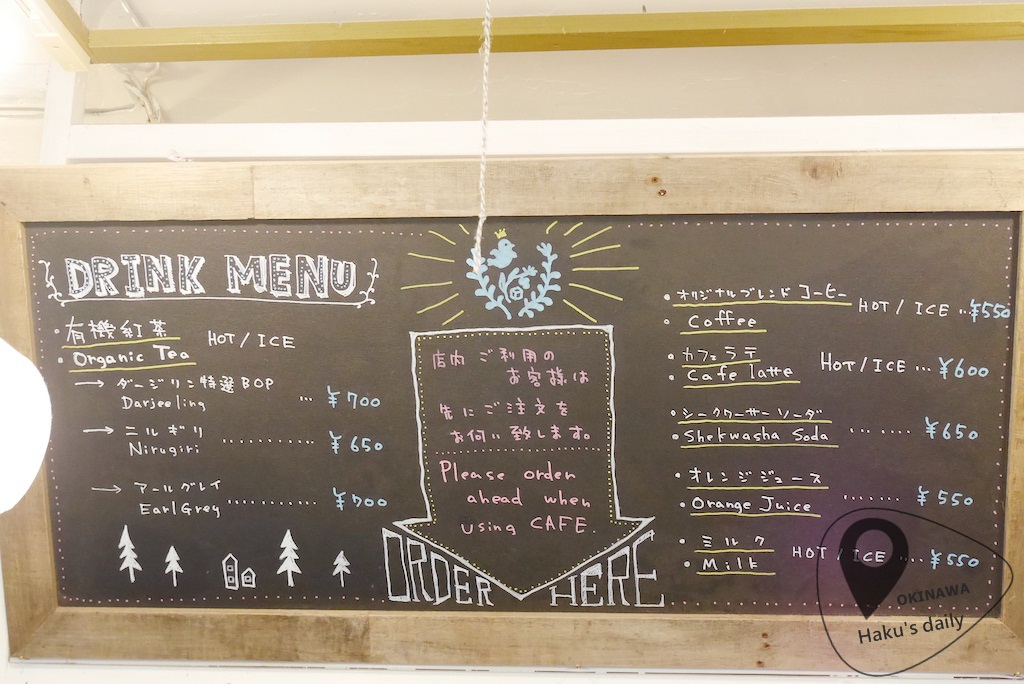 DRINK MENU
有機紅茶
Organic Tea
HOT / ICE
→ ダージリン特選BOP
Darjeeling … ¥700
→ ニルギリ
Nirugiri ......... ¥650
→ アールグレイ
Earl Grey ......... ¥700
店内 ご利用の
お客様は
先にご注文を
お伺い致します。
Please order
ahead when
using CAFE.
ORDER HERE
オリジナルブレンド コーヒー
Coffee
HOT / ICE … ¥550
カフェラテ
Cafe latte
HOT / ICE … ¥600
シークワーサーソーダ
Shekwasha Soda ........ ¥650
オレンジジュース
Orange Juice ...... ¥550
ミルク
Milk
HOT / ICE .... ¥550
OKINAWA
Haku's daily